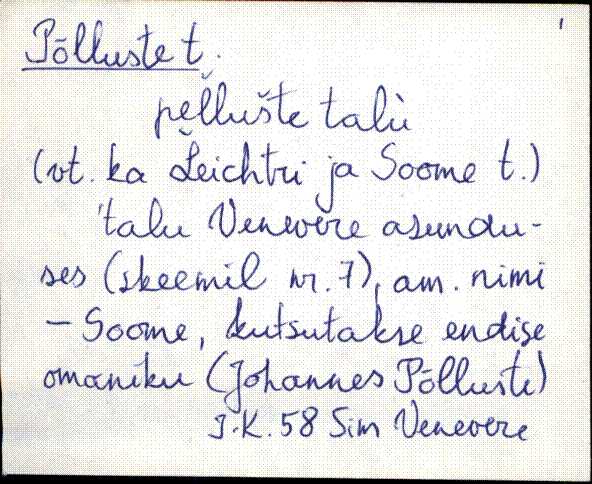 Põlluste t.
pe̮llušte talù
(vt. ka Leichtri ja Soome t.)
'talu Venevere asundu-
ses (skeemil nr. 7), am. nimi
– Soome, kutsutakse endise
omaniku (Johannes Põlluste)
J.K. 58 Sim Venevere